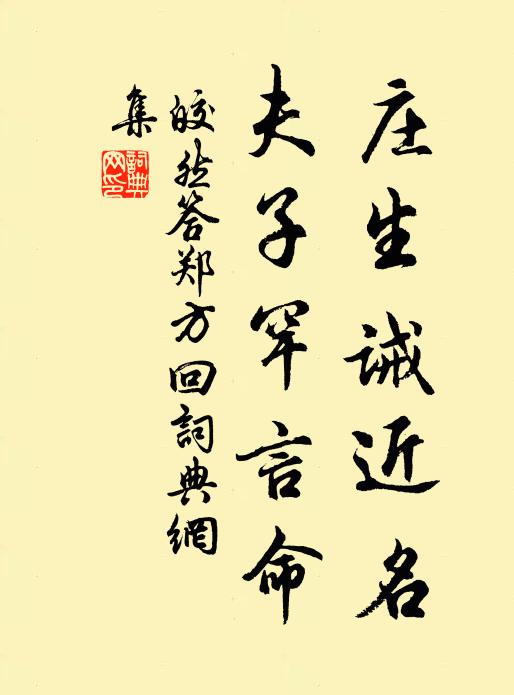 庄生诫近名
夫子罕言命
皎然答郑方回詞典網
集
詞典网印